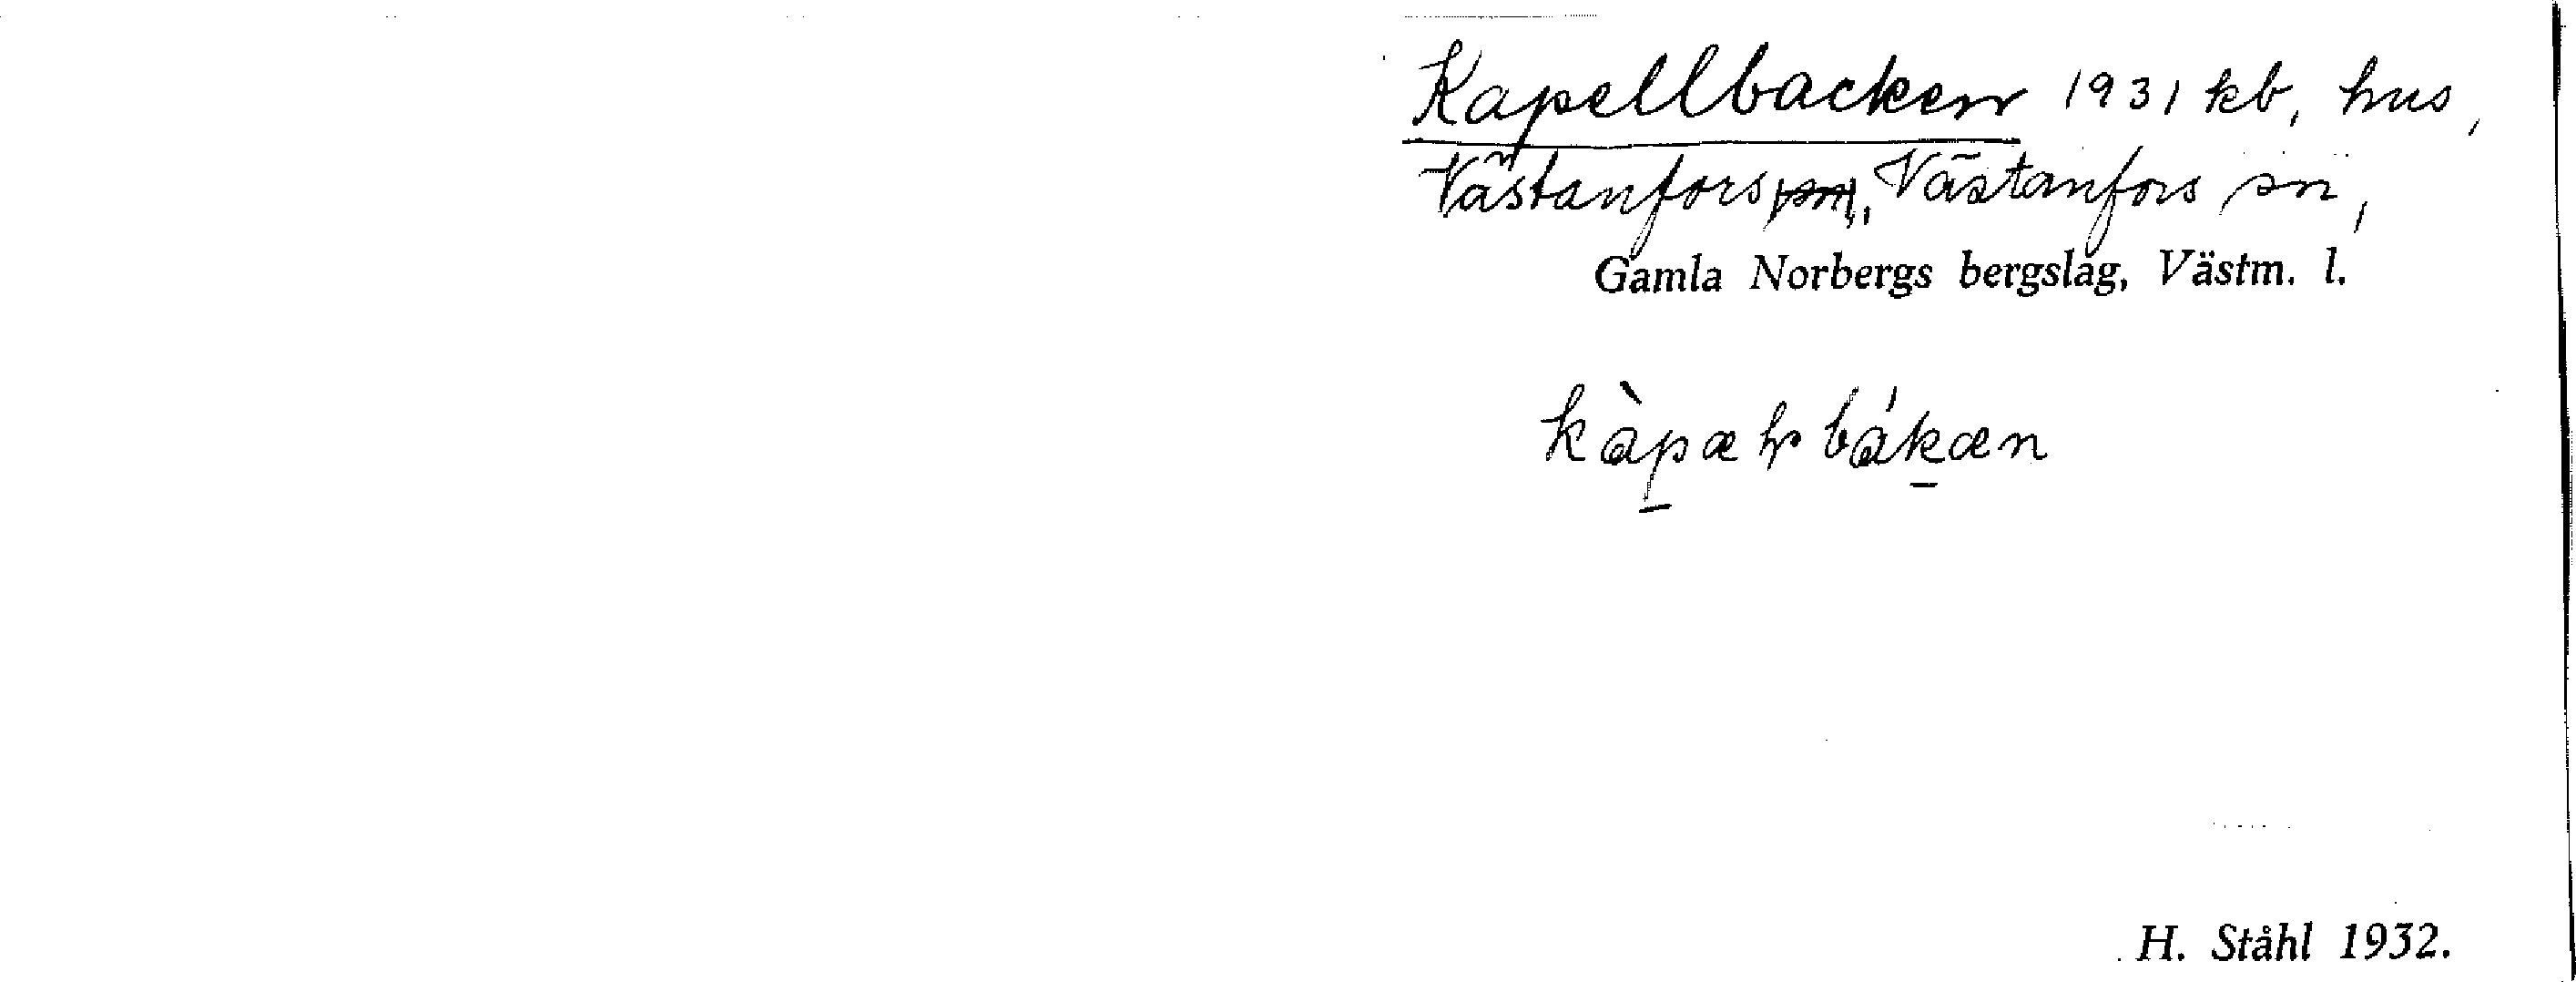 Kapellbacken 1931 kb, hus,
Västanfors, Västanfors sn,
Gamla Norbergs bergslag, Västm. l.
H. Ståhl 1932.